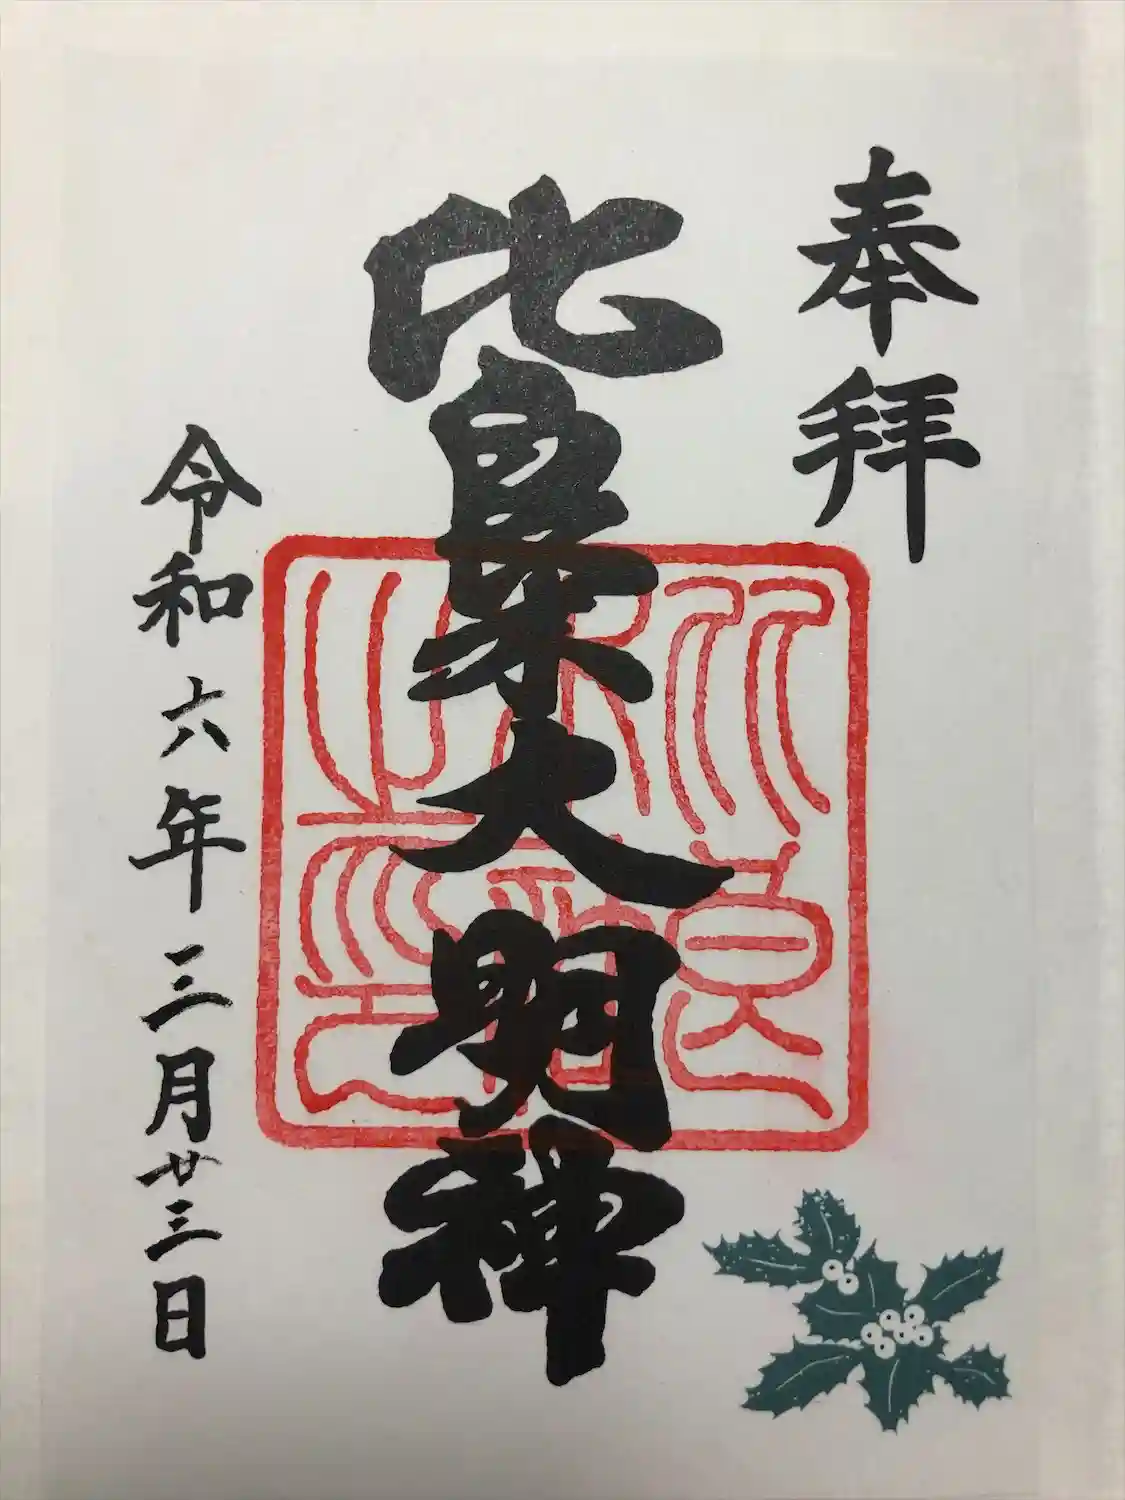 奉拝
比良木大明神
令和六年三月廿三日